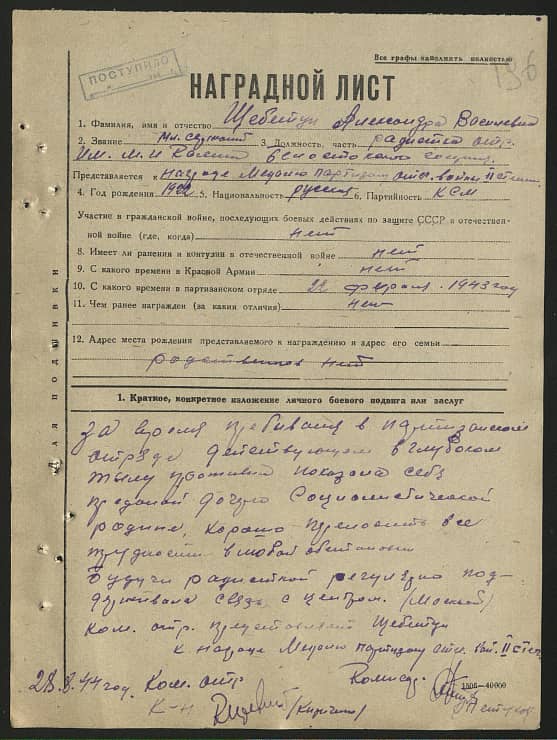 136
Все графы заполнить полностью
ПОСТУПИЛО
НАГРАДНОЙ ЛИСТ
1. Фамилия, имя и отчество Щебетун Александра Васильевна
2. Звание Мл. сержант 3. Должность, часть радистка отр.
Им. М. И. Белостокского соедин.
Представляется к награде Медалью партизан отеч. войны II степ.
4. Год рождения 1922 5. Национальность русская 6. Партийность КСМ
Участие в гражданской войне, последующих боевых действиях по защите СССР и отечествен-
ной войне (где, когда) нет
8. Имеет ли ранения и контузии в отечественной войне нет
9. С какого времени в Красной Армии нет
10. С какого времени в партизанском отряде 22 февраля 1943 год
11. Чем ранее награжден (за какия отличия) нет
12. Адрес места рождения представляемого к награждению и адрес его семьи
родственников нет
Для подшивки
1. Краткое, конкретное изложение личного боевого подвига или заслуг
За время пребывания в партизанском
отряде действующем в глубоком
тылу противника показала себя
преданой дочерью Социалистической
родине, хорошо переносить все
трудности в любой обстановке
Будучи радисткой регулярно под-
держивала связь с центром. (Москвой)
Ком. отр. представляет Щебетун
к награде Медалью партизану отеч. вой. II степ.
28.8.44 год. Ком. отр Комисар
1506-40000
К-н